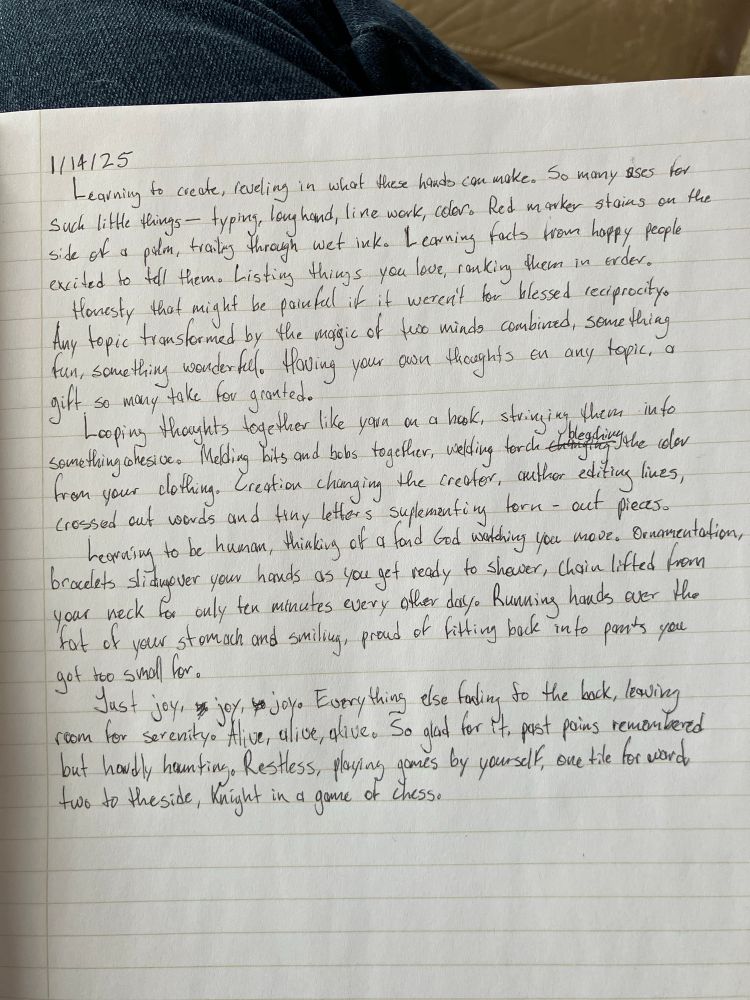 1/14/25
Learning to create, reveling in what these hands can make. So many uses for
such little things — typing, longhand, line work, color. Red marker stains on the
side of a palm, trailing through wet ink. Learning facts from happy people
excited to tell them. Listing things you love, ranking them in order.
Honesty that might be painful if it weren't for blessed reciprocity.
Any topic transformed by the magic of two minds combined, something
fun, something wonderful. Having your own thoughts on any topic, a
gift so many take for granted.
Looping thoughts together like yarn on a hook, stringing them into
something cohesive. Melding bits and bobs together, welding torch bleaching the color
from your clothing. Creation changing the creator, author editing lines,
crossed out words and tiny letters suplementing torn-out pieces.
Learning to be human, thinking of a fond God watching you move. Ornamentation,
bracelets sliding over your hands as you get ready to shower, chain lifted from
your neck for only ten minutes every other day. Running hands over the
fat of your stomach and smiling, proud of fitting back into pants you
got too small for.
Just joy, joy, joy. Everything else fading to the back, leaving
room for serenity. Alive, alive, alive. So glad for it, past pains remembered
but hardly haunting. Restless, playing games by yourself, one tile forward
two to the side, Knight in a game of chess.